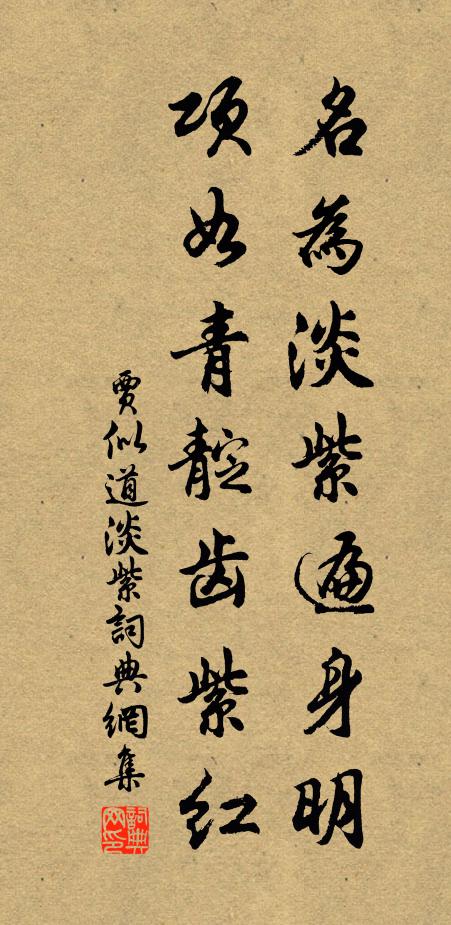 名為淡紫遍身明
項如青靛齒紫紅
賈似道淡紫詞典網集
詞典網印